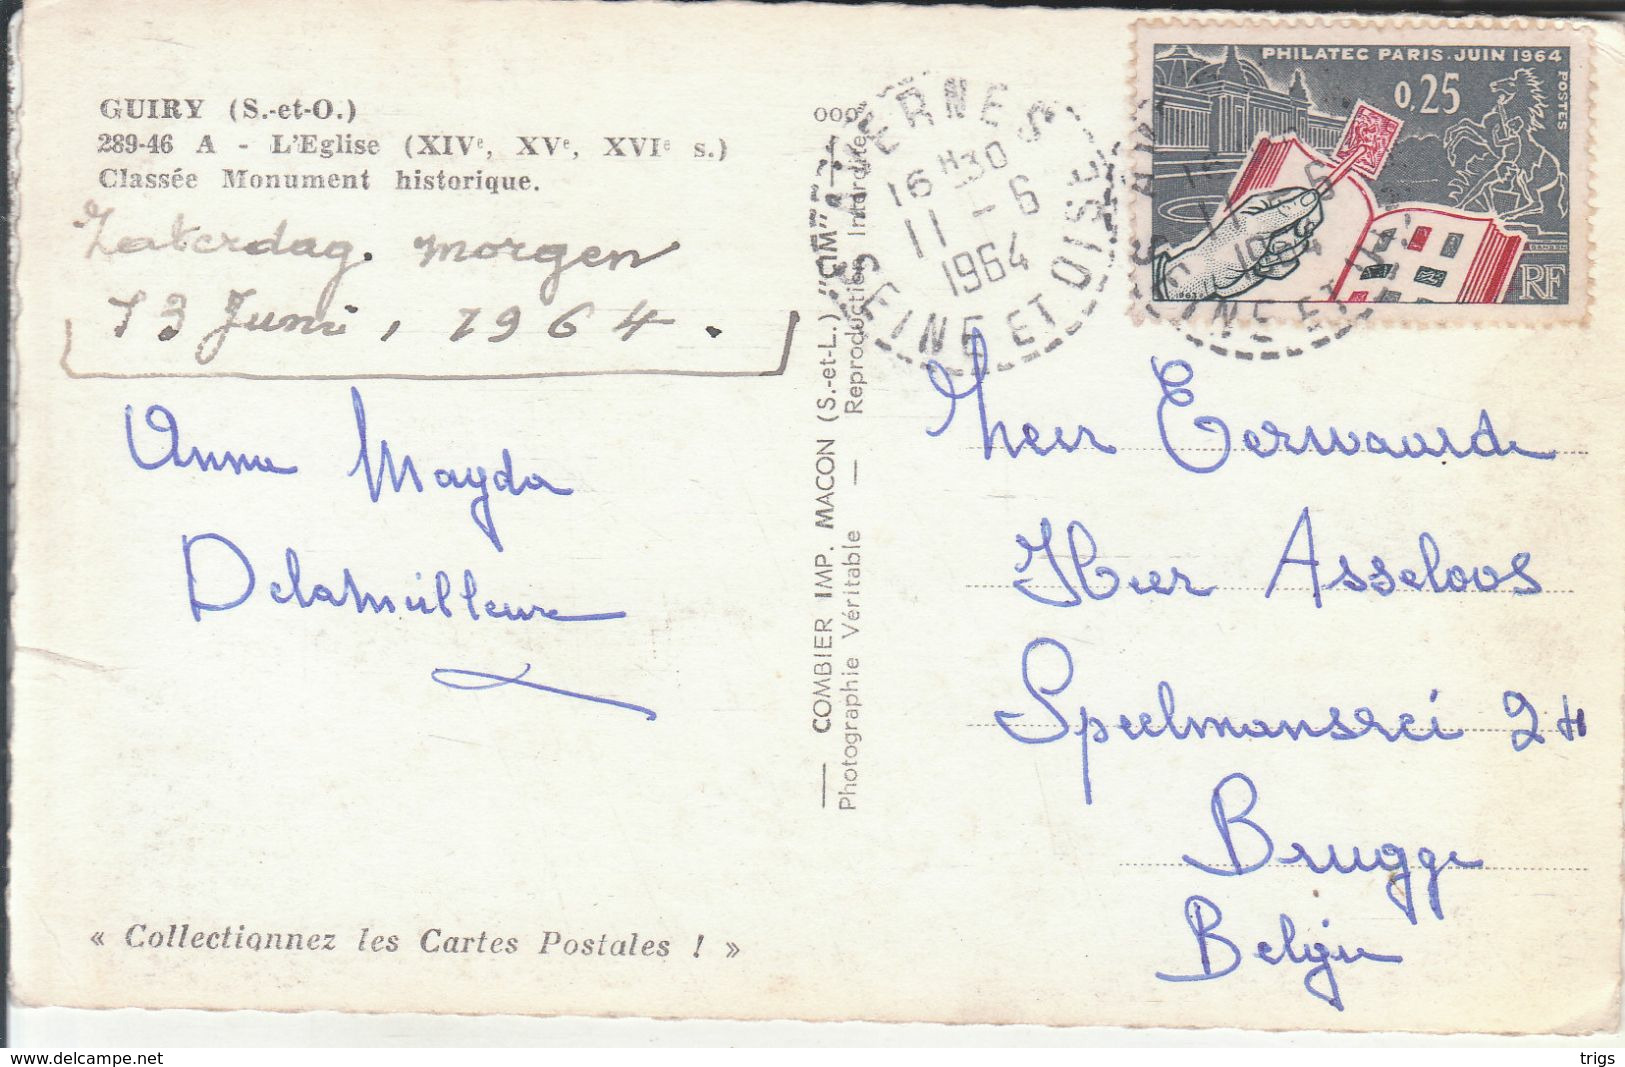 GUIRY (S.-et-O.)
289-46 A - L'Eglise (XIVe, XVe, XVIe s.)
Classée Monument historique.
Zaterdag. morgen
13 Juni, 1964.
Anne Mayda
« Collectionnez les Cartes Postales ! »
— COMBIER IMP. MACON (S.-et-L.) "CIM"
Photographie Véritable — Reproduction Interdite
16 H30
11 - 6
1964
SEINE ET OISE
PHILATEC PARIS-JUIN 1964
0,25
POSTES
RF
Heer Asseloos
Speelmansrei 24
Brugge
Belgie
www.delcampe.net
trigs